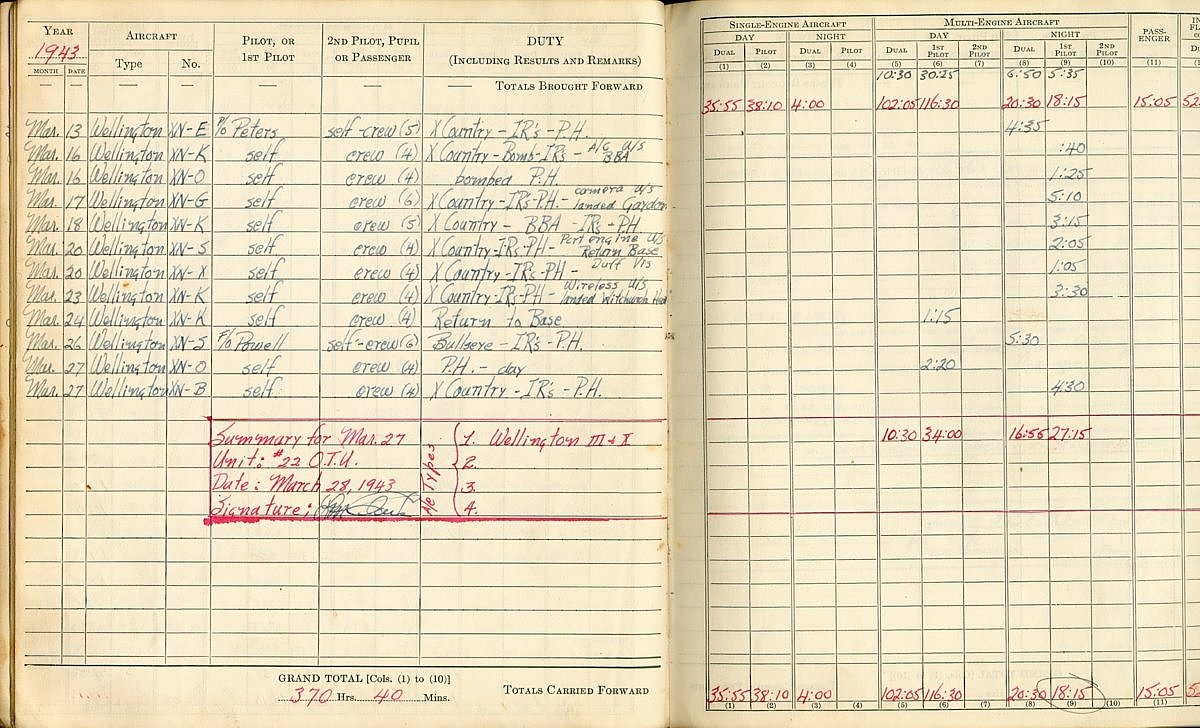 YEAR 1943 AIRCRAFT PILOT, OR 1ST PILOT 2ND PILOT, PUPIL OR PASSENGER DUTY (INCLUDING RESULTS AND REMARKS)
MONTH DATE Type No.
— — — — — — — TOTALS BROUGHT FORWARD
Mar. 13 Wellington XN-E P/o Peters self-crew (5) X Country - IR's - P.H.
Mar. 16 Wellington XN-K self crew (4) X Country - Bomb - IR's - A/C U/S BBA
Mar. 16 Wellington XN-O self crew (4) bombed P.H.
Mar. 17 Wellington XN-G self crew (6) X Country - IR's-P.H. - camera u/s landed Gaydon
Mar. 18 Wellington XN-K self crew (5) X Country - BBA - IRs - PH
Mar. 20 Wellington XN-S self crew (4) X Country-IRs-PH - Port engine U/S Return Base
Mar. 20 Wellington XN-X self crew (4) X Country-IRs-PH - Duff Vis
Mar. 23 Wellington XN-K self crew (4) X Country-IRs-PH - Wireless U/S landed Witchurch Heath
Mar. 24 Wellington XN-K self crew (4) Return to Base
Mar. 26 Wellington XN-S F/o Powell self-crew (6) Bullseye - IR's - P.H.
Mar. 27 Wellington XN-O self crew (4) P.H. - day
Mar. 27 Wellington XN-B self crew (4) X Country - IR's - P.H.
Summary for Mar. 27 A/c Types 1. Wellington III & X
Unit: #22 O.T.U. 2.
Date: March 28, 1943 3.
Signature: 4.
GRAND TOTAL [Cols. (1) to (10)]
370 Hrs. 40 Mins. TOTALS CARRIED FORWARD
SINGLE-ENGINE AIRCRAFT MULTI-ENGINE AIRCRAFT PASS-ENGER
DAY NIGHT DAY NIGHT
DUAL PILOT DUAL PILOT DUAL 1ST PILOT 2ND PILOT DUAL 1ST PILOT 2ND PILOT
(1) (2) (3) (4) (5) (6) (7) (8) (9) (10) (11)
10:30 30:25 6:50 5:35
35:55 38:10 4:00 102:05 116:30 20:30 18:15 15:05 52
4:35
:40
1:25
5:10
3:15
2:05
1:05
3:30
1:15
5:30
2:20
4:30
10:30 34:00 16:55 27:15
35:55 38:10 4:00 102:05 116:30 20:30 18:15 15:05
(1) (2) (3) (4) (5) (6) (7) (8) (9) (10) (11)